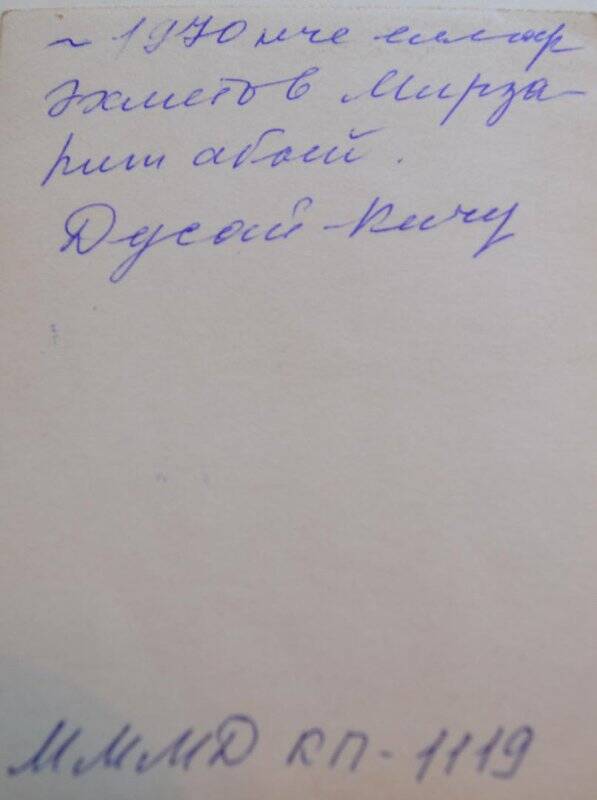 ~ 1970 нче еллар
Әхмәтов Мирза-
рип абый.
Дусай-Кичу
МММД КП-1119